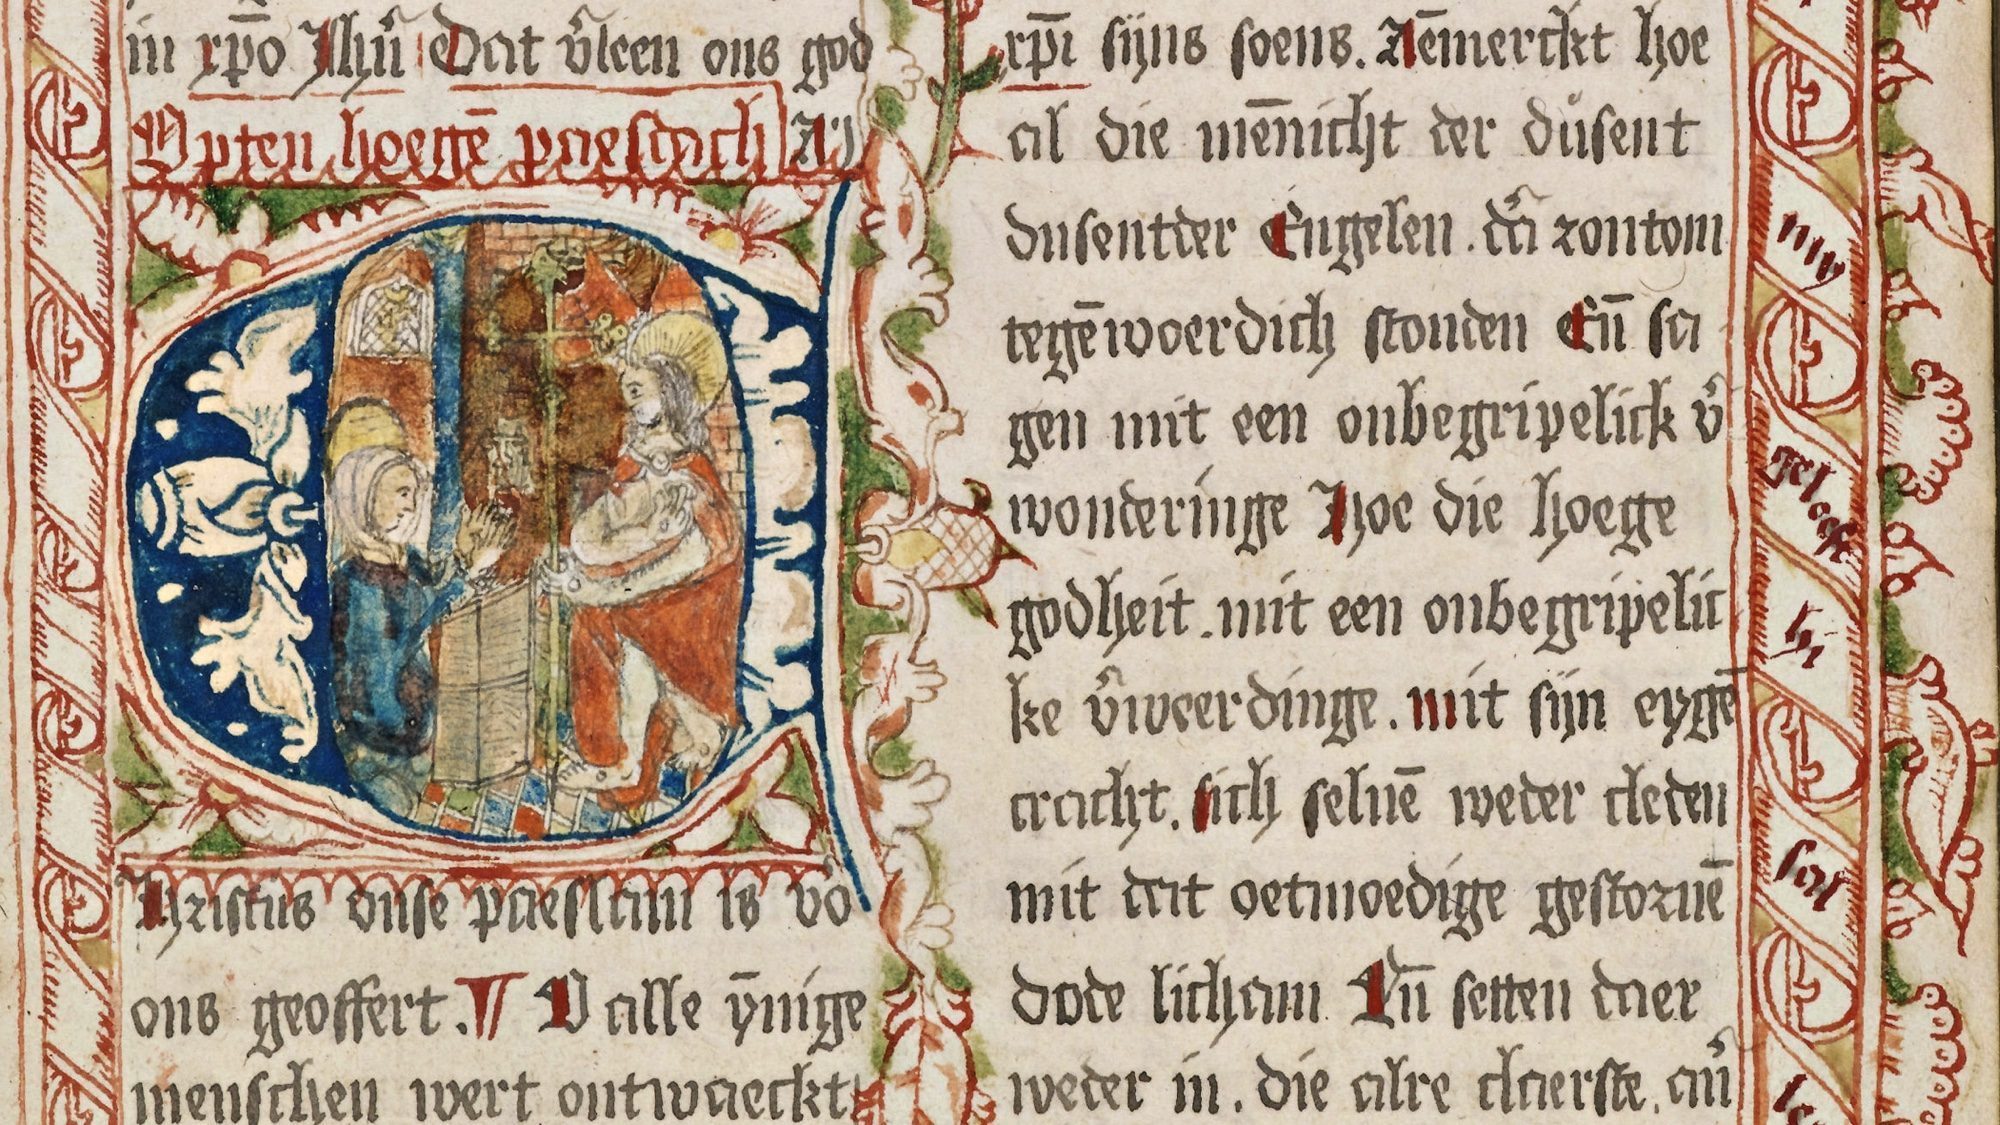 in xp̄o Jhū Dat v̄leen ons god
Opten hoegē paeschdach
Christus onse paeslam is vō
ons geoffert. O alle ynige
menschen wert ontwaeckt
xp̄i sijns soens. Aēmerckt hoe
al die mēnicht der dusent
dusentder Engelen. dāi zontom
tegēwoerdich stonden Eñ sa
gen mit een onbegripelick v̄
wonderinge Hoe die hoege
godheit. mit een onbegripelic
ke v̄weerdinge. mit sijn eygē
cracht. sich seluē weder cleden
mit dat oetmoedige gestoruē
dode licham Eñ setten daer
weder in. die alre claerste. am̄
my
geloeft
hi
sal